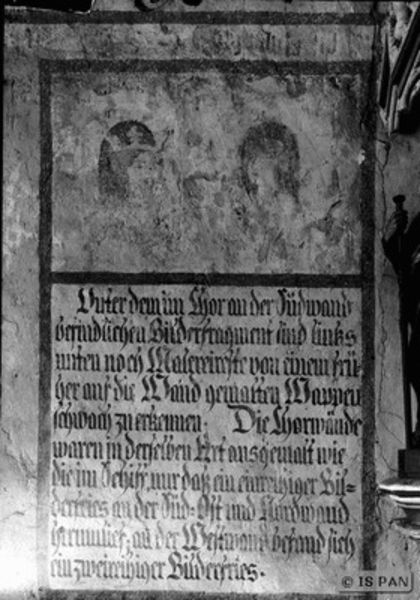 Unter dem im Chor an der Südwand
befindlichen Bilderfragment sind links
unten noch Malereireste von einem frü-
her auf die Wand gemalten Wappen
schwach zu erkennen. Die Chorwände
waren in derselben Art ausgemalt wie
die im Schiff, nur daß ein einreihiger Bil-
derfries an der Süd- Ost und Nordwand
herumlief, an der Westwand befand sich
ein zweireihiger Bilderfries.
© IS PAN